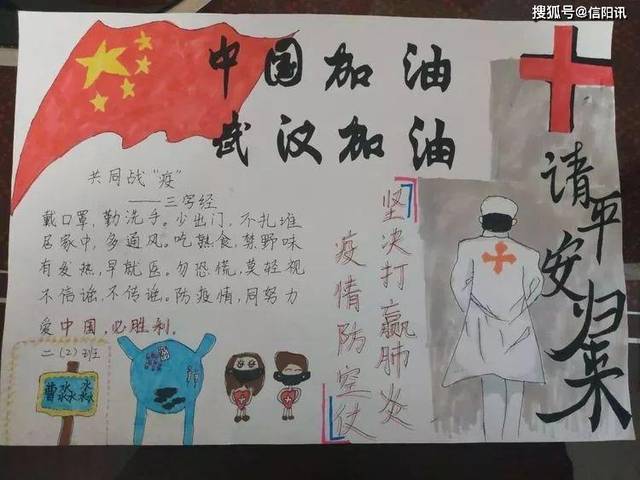 搜狐号@信阳讯
中国加油
武汉加油
共同战“疫”
——三字经
戴口罩，勤洗手。少出门，不扎堆
居家中，多通风。吃熟食，禁野味
有发热，早就医。勿恐慌，莫轻视
不信谣，不传谣。防疫情，同努力
爱中国，必胜利。
二（2）班
曹淼淼
坚决打赢肺炎
疫情防空仗
请平安归来